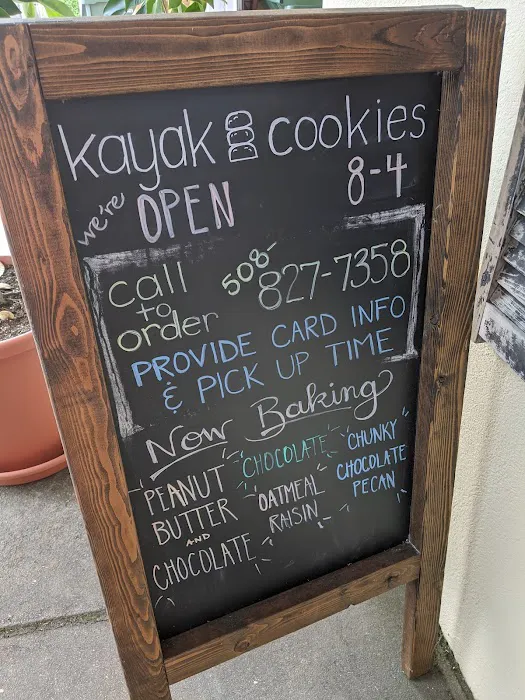 kayak cookies
we're OPEN 8-4
call to order 508-827-7358
PROVIDE CARD INFO
& PICK UP TIME
Now Baking
PEANUT BUTTER AND CHOCOLATE
CHOCOLATE
OATMEAL RAISIN
CHUNKY CHOCOLATE PECAN